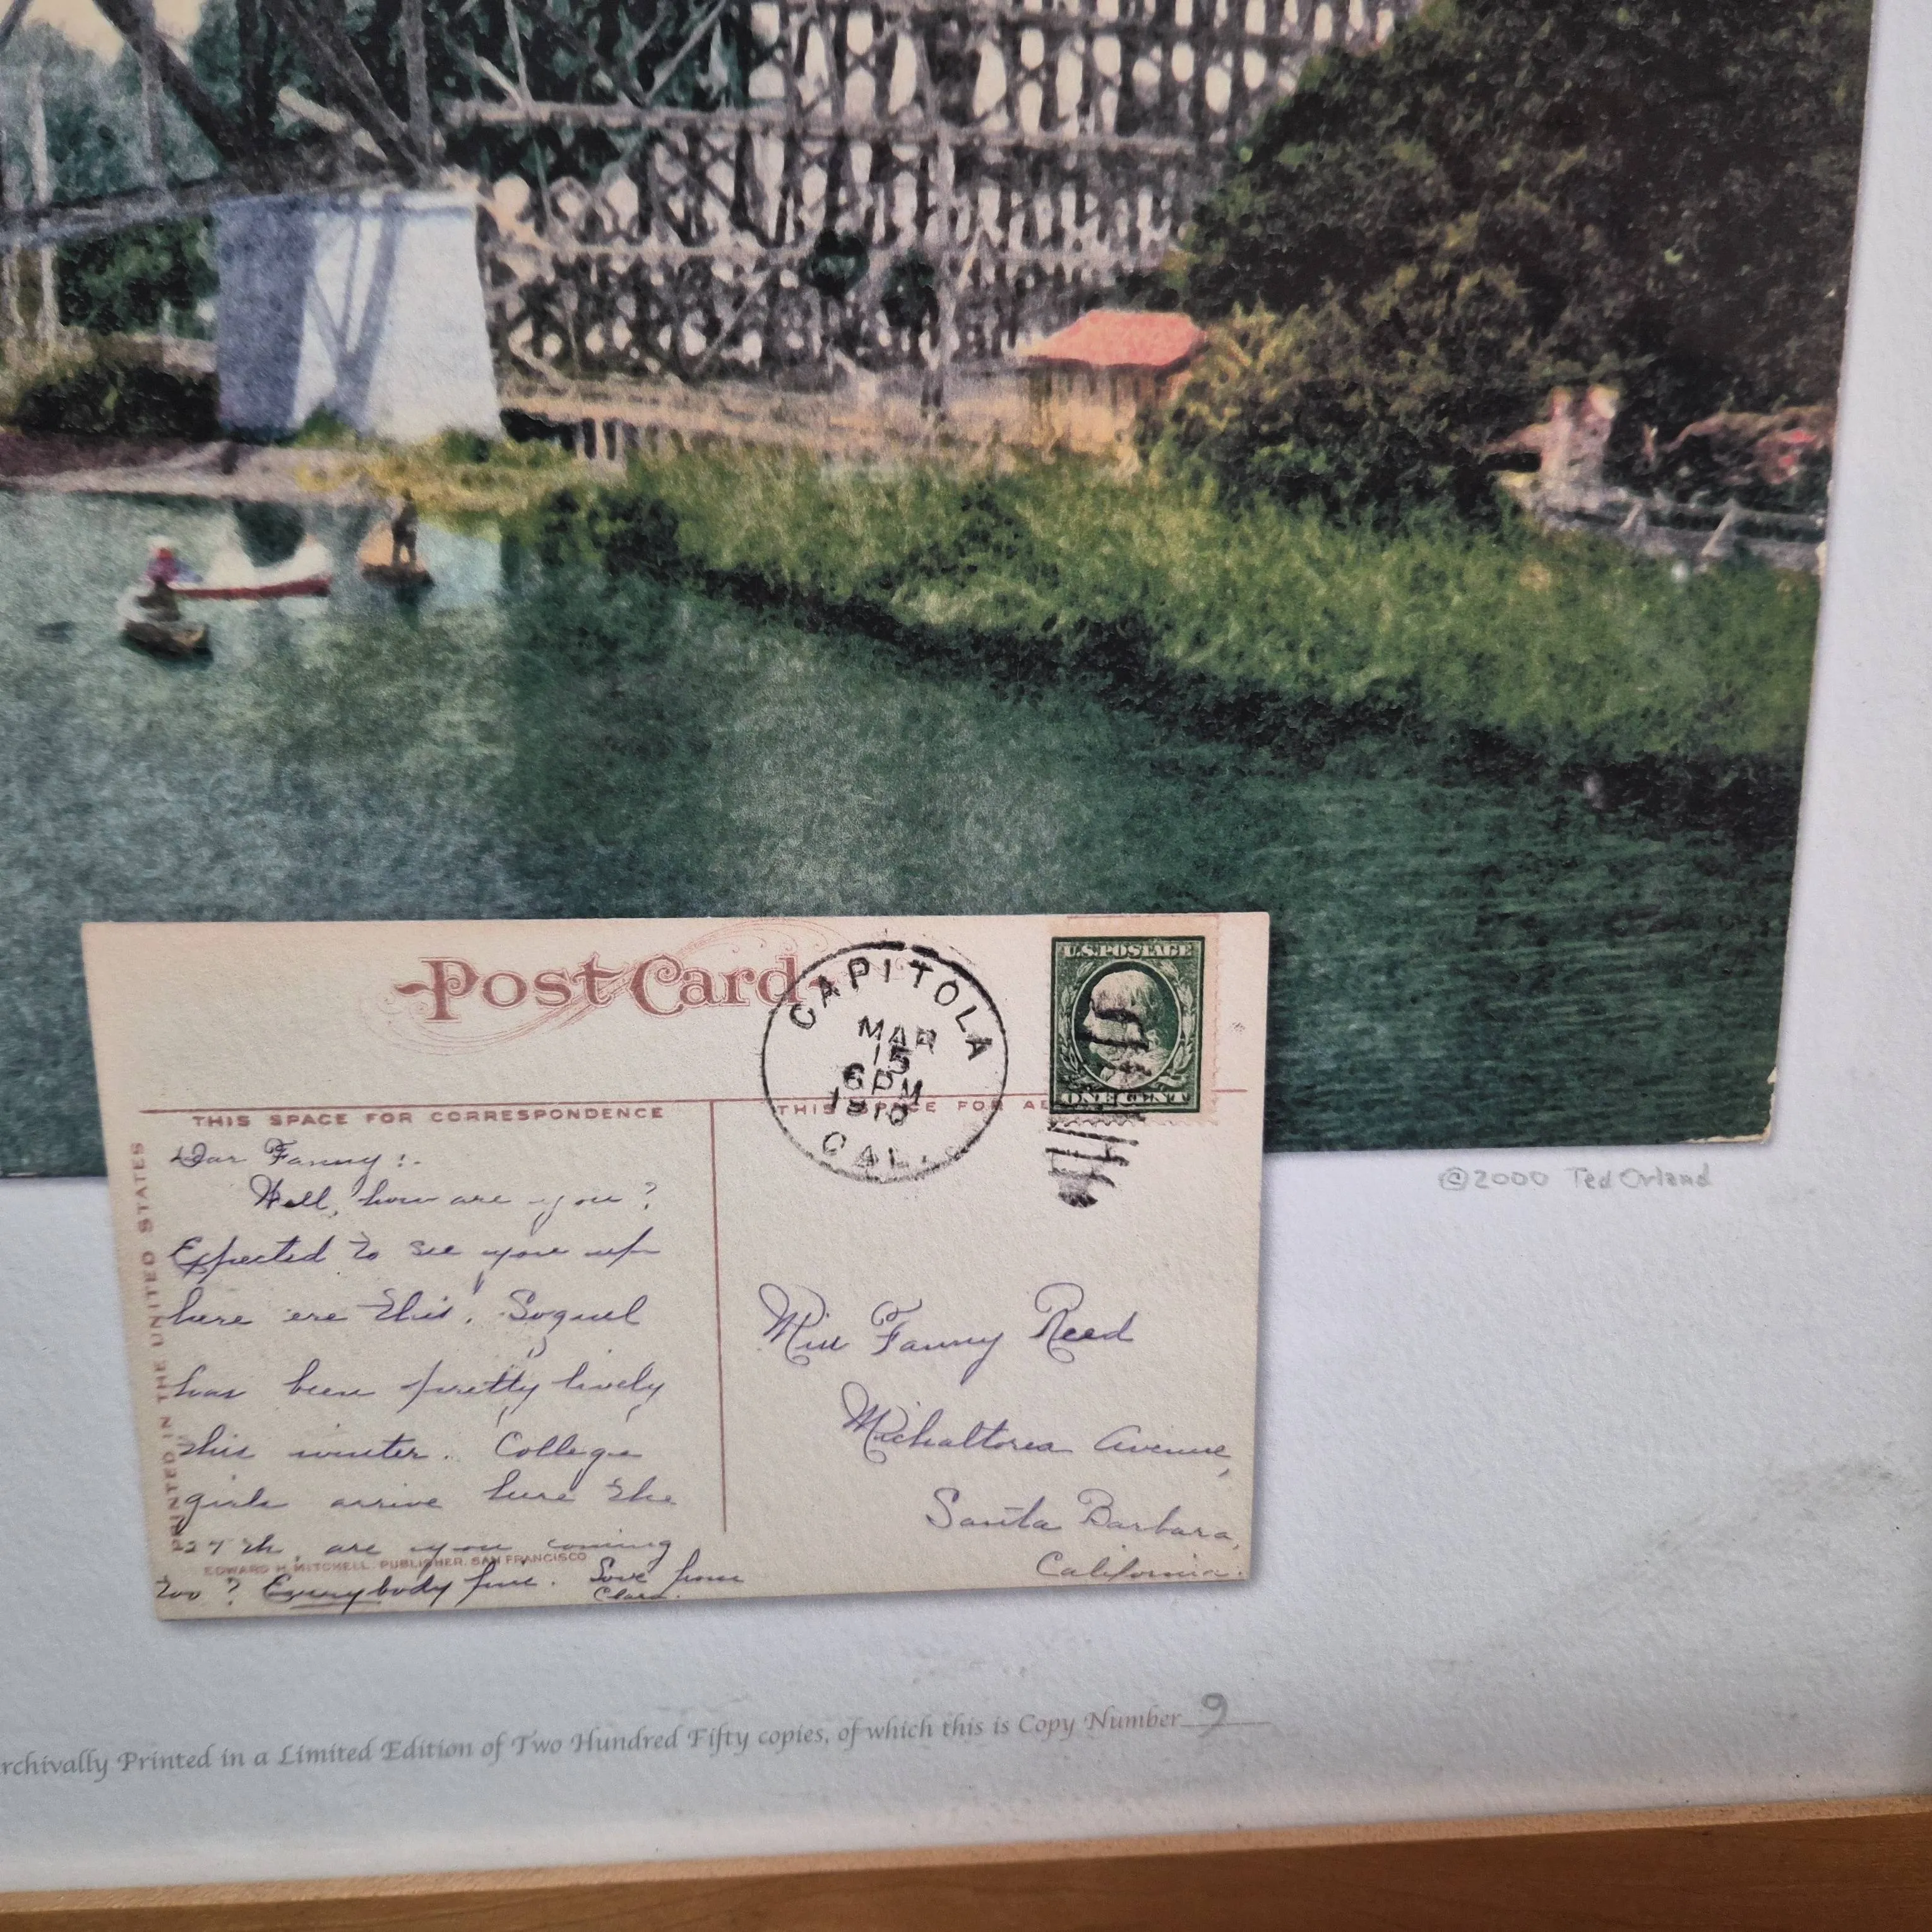 Post Card
CAPITOLA
MAR
15
6 PM
1910
CAL.
U.S. POSTAGE
ONE CENT
THIS SPACE FOR CORRESPONDENCE
THIS SPACE FOR AD
PRINTED IN THE UNITED STATES
Dear Fanny :-
Well, how are you ?
Expected to see you up
here ere this. Soquel
has been pretty lively
this winter. College
girls arrive here the
27th, are you coming
too ? Everybody fine. Love from
Clara.
EDWARD H. MITCHELL, PUBLISHER, SAN FRANCISCO
Miss Fanny Reed
Michaltorea Avenue,
Santa Barbara,
California.
©2000 Ted Orland
rchivally Printed in a Limited Edition of Two Hundred Fifty copies, of which this is Copy Number 9